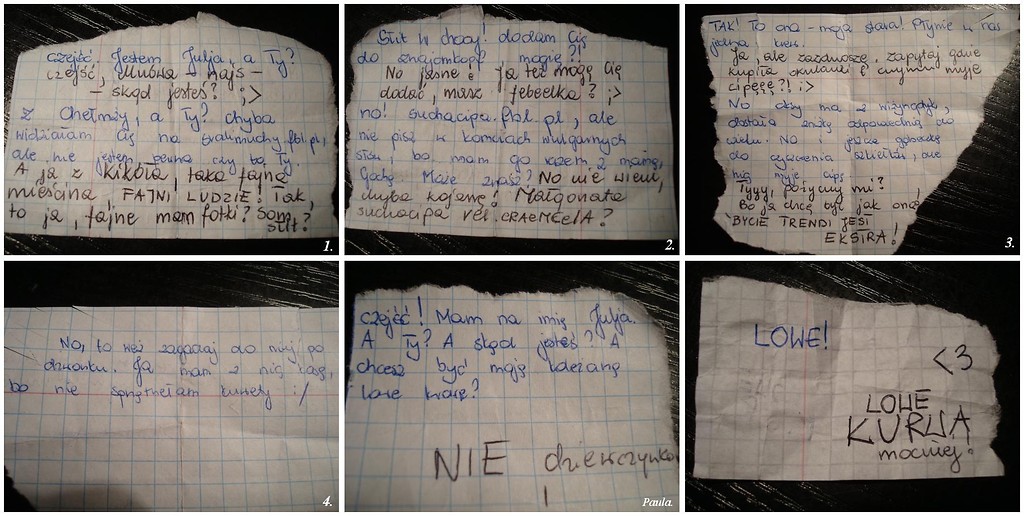 czejść. Jestem Julja, a Ty?
czejść, Miłośka - najs -
- skąd jesteś? ;>
z Chełmży, a Ty? chyba
widziałam cię na svalimuchy.fbl.pl,
ale nie jestem pewna czy to Ty.
A ja z Kikoła, taka fajna
mieścina, FAJNI LUDZIE! Tak,
to ja, fajne mam fotki? Som
słit?
1.
Słit w chooy! dodam Cię
do znajomków, mogię?!
No jasne, ja też mogę Cię
dodać, masz febeelka? ;>
no! suchacipa.fbl.pl, ale
nie pisz w komciach wulgarnych
słów, bo mam go razem z mamą,
Gochą. Może znasz? No nie wiem,
chyba kojane! Małgorzata
suchacipa vel.
2.
TAK! To ona - moja stara! Płynie w nas
jedna krew.
Ja, ale zazdroszę, zapytaj gdzie
kupiła okulari i czymu myje
cipęęę?! ;>
No oky ma z wizjnędyk,
dostała zniżkę odpowiednią do
wieku. No i jeszcze gąbeczkę
do czyszczenia szkiełek, ale
nią myje cips
Tyyy, pożycmy mi?
Bo ja chcę być jak ona,
BYCIE TRENDI JEST
EKSTRA!
3.
No, to weź zagadaj do niej po
dzwonku. Ja mam z nią
bo nie sprzętnełam kuwety :/
4.
czejść! Mam na imię Julja.
A Ty? A skąd jesteś? A
chcesz być moją koleżanę
lowe kwaję?
NIE dziewczynko
!
Paula.
LOWE!
<3
LOWE
KURWA
mocniej.